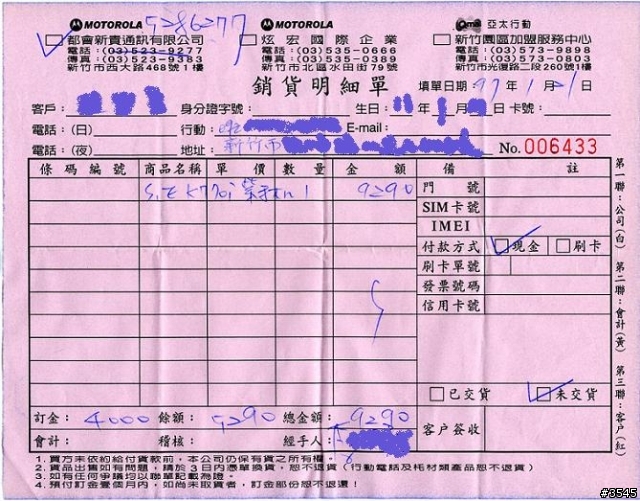 MOTOROLA 5286277 MOTOROLA 亞太行動
都會新貴通訊有限公司 炫宏國際企業 新竹園區加盟服務中心
電話:(03)523-9277 電話:(03)535-0666 電話:(03)573-9898
傳真:(03)523-9383 傳真:(03)535-0389 傳真:(03)573-0803
新竹市西大路468號1樓 新竹市北區水田街79號 新竹市光復路二段260號1樓
銷貨明細單 填單日期:97/1/21
客戶: 身分證字號: 生日: 年 月 日 卡號:
電話:(日) 行動: E-mail:
電話:(夜) 地址:新竹市 No.006433
條碼編號 商品名稱 單價 數量 金額 備註
K770i 1 9290
門號
SIM卡號
IMEI
付款方式 現金 刷卡
刷卡單號
發票號碼
信用卡號
已交貨 未交貨
訂金:4000 餘額:5290 總金額:9290
客戶簽收
會計: 稽核: 經手人:
第一聯:公司(白) 第二聯:會計(黃) 第三聯:客戶(紅)
1.買方未依約給付貨款前,本公司仍保有貨之所有權。
2.貨品出售如有問題,請於3日內憑單換貨,恕不退貨(行動電話及耗材類產品恕不退貨)
3.如有任何爭議均以聯單記載為證。
4.預付訂金壹個月內,如尚未取貨者,訂金部份恕不退還!
#3545